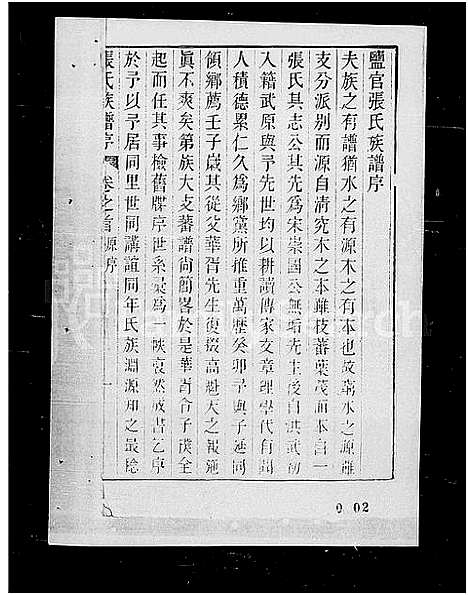 鹽官張氏族譜序
夫族之有譜猶水之有源木之有本也故窮水之源雖
支分派别而源自清究木之本雖枝蕃葉茂而本自一
張氏其志公其先為宋崇國公無垢先生後自洪武初
入籍武原與予先世均以耕讀傳家文章理學代有聞
人積德累仁久為鄉黨所推重萬歷癸卯予與子延同
領鄉薦壬子歲其從父華胥先生復掇高魁天之報施
真不爽矣第族大支蕃譜尚簡畧於是華胥命子僕全
起而任其事檢舊牒序世系裒為一帙袁然成書乞序
於予以予居同里世同講誼同年氏族淵源知之最稔
張氏族譜序 卷之首 源序 一
0 02